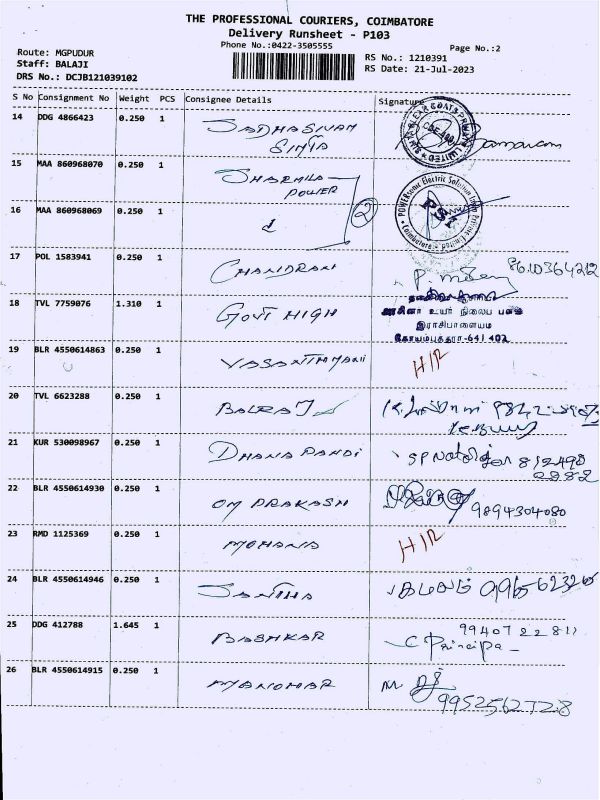 THE PROFESSIONAL COURIERS, COIMBATORE
Delivery Runsheet - P103
Phone No.:0422-3505555
Page No.:2
Route: MGPUDUR
Staff: BALAJI
DRS No.: DCJB121039102
RS No.: 1210391
RS Date: 21-Jul-2023
S No Consignment No Weight PCS Consignee Details Signature
14 DDG 4866423 0.250 1 SADHASIVAM
15 MAA 860968070 0.250 1 SHARMILA
POWER
16 MAA 860968069 0.250 1 2
17 POL 1583941 0.250 1 CHANDRAN 8610364212
18 TVL 7759076 1.310 1 GOVT HIGH
அரசினர் உயர் நிலைப் பள்ளி
இராசிபாளையம்
கோயமுத்தூர்-641 402
19 BLR 4550614863 0.250 1 VASANTHMANI
20 TVL 6623288 0.250 1 BALRAJ
21 KUR 530098967 0.250 1 DHANA PANDI
22 BLR 4550614930 0.250 1 OM PRAKASH 9894304080
23 RMD 1125369 0.250 1 MOHANA
24 BLR 4550614946 0.250 1 SANTHA
25 DDG 412788 1.645 1 BASHKAR 99407 22811
26 BLR 4550614915 0.250 1 MANOHAR
9952562728